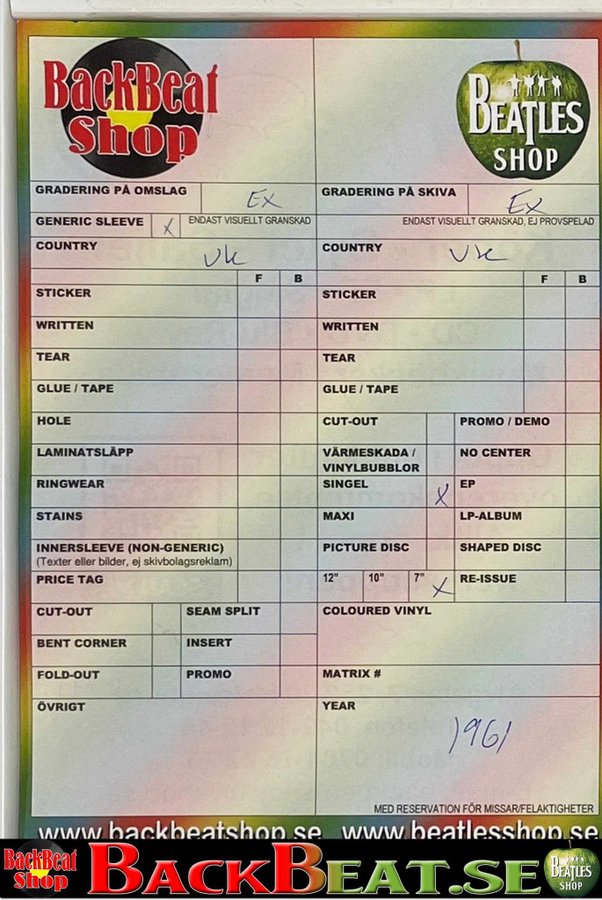 BackBeat Shop
BEATLES SHOP
GRADERING PÅ OMSLAG Ex
GRADERING PÅ SKIVA Ex
GENERIC SLEEVE x ENDAST VISUELLT GRANSKAD
ENDAST VISUELLT GRANSKAD, EJ PROVSPELAD
COUNTRY UK
COUNTRY UK
F B
F B
STICKER
STICKER
WRITTEN
WRITTEN
TEAR
TEAR
GLUE / TAPE
GLUE / TAPE
HOLE
CUT-OUT PROMO / DEMO
LAMINATSLÄPP
VÄRMESKADA /
VINYLBUBBLOR
NO CENTER
RINGWEAR
SINGEL x EP
STAINS
MAXI LP-ALBUM
INNERSLEEVE (NON-GENERIC)
(Texter eller bilder, ej skivbolagsreklam)
PICTURE DISC SHAPED DISC
PRICE TAG
12" 10" 7" x RE-ISSUE
CUT-OUT SEAM SPLIT
COLOURED VINYL
BENT CORNER INSERT
FOLD-OUT PROMO
MATRIX #
ÖVRIGT
YEAR
1961
MED RESERVATION FÖR MISSAR/FELAKTIGHETER
www.backbeatshop.se www.beatlesshop.se
BackBeat Shop BACKBEAT.SE BEATLES SHOP